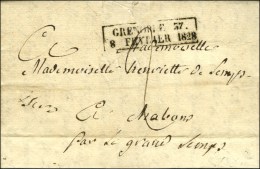 GRENOBLE 37.
8 FEVRIER 1828
A Mademoiselle
Mademoiselle Henriette de Lemps
A
par le grand Lemps